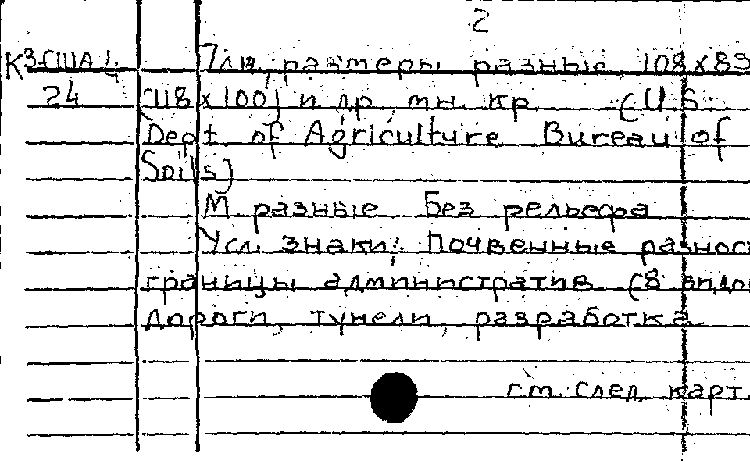 2
К3-США/4 7 лл., размеры разные, 108х89
24 (118х100) и др., мн. кр. (U.S.
Dept. of Agriculture Bureau of
Soils)
М. разные Без рельефа
Усл. знаки: Почвенные разнос
границы административ. (8
Дороги, тунели, разработка
см. след. карт.